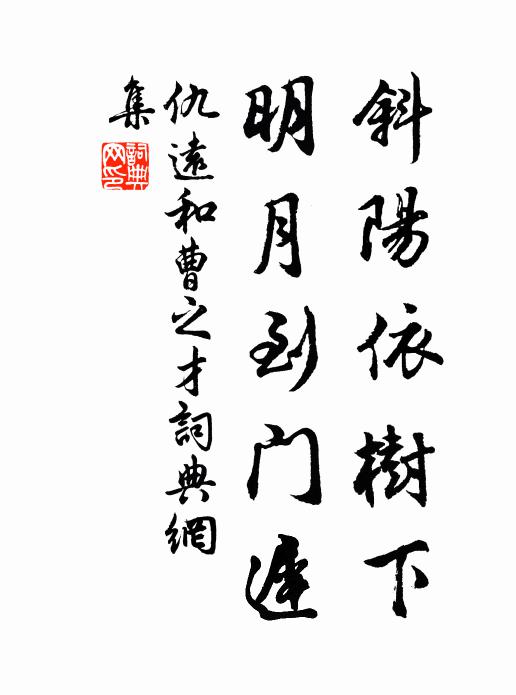 斜陽依樹下
明月到门遲
仇遠和曹之才詞典網
集
詞典网印